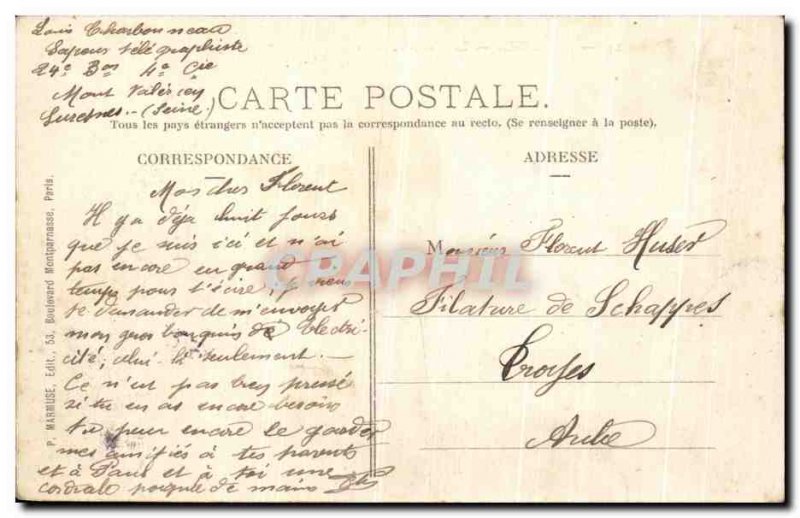 Louis Charbonneau
Sapeur télégraphiste
24e Bon 4e Cie
Mont Valérien
Suresnes - (Seine)
CARTE POSTALE.
Tous les pays étrangers n'acceptent pas la correspondance au recto. (Se renseigner à la poste).
CORRESPONDANCE
Mon cher Florent
Il y a déjà huit jours
que je suis ici et n'ai
pas encore eu grand
temps pour t'écrire, je viens
te demander de m'envoyer
mon gros bouquin de l'électri-
cité, celui là seulement. —
Ce n'est pas bien pressé
si tu en as encore besoin
tu peux encore le garder
mes amitiés à tes parents
et à et à toi une
cordiale poignée de mains
ADRESSE
Monsieur Florent Huser
Filature de Schappes
Troyes
Aube
P. MARMUSE, Edit., 53, Boulevard Montparnasse, Paris.
CPAPHIL